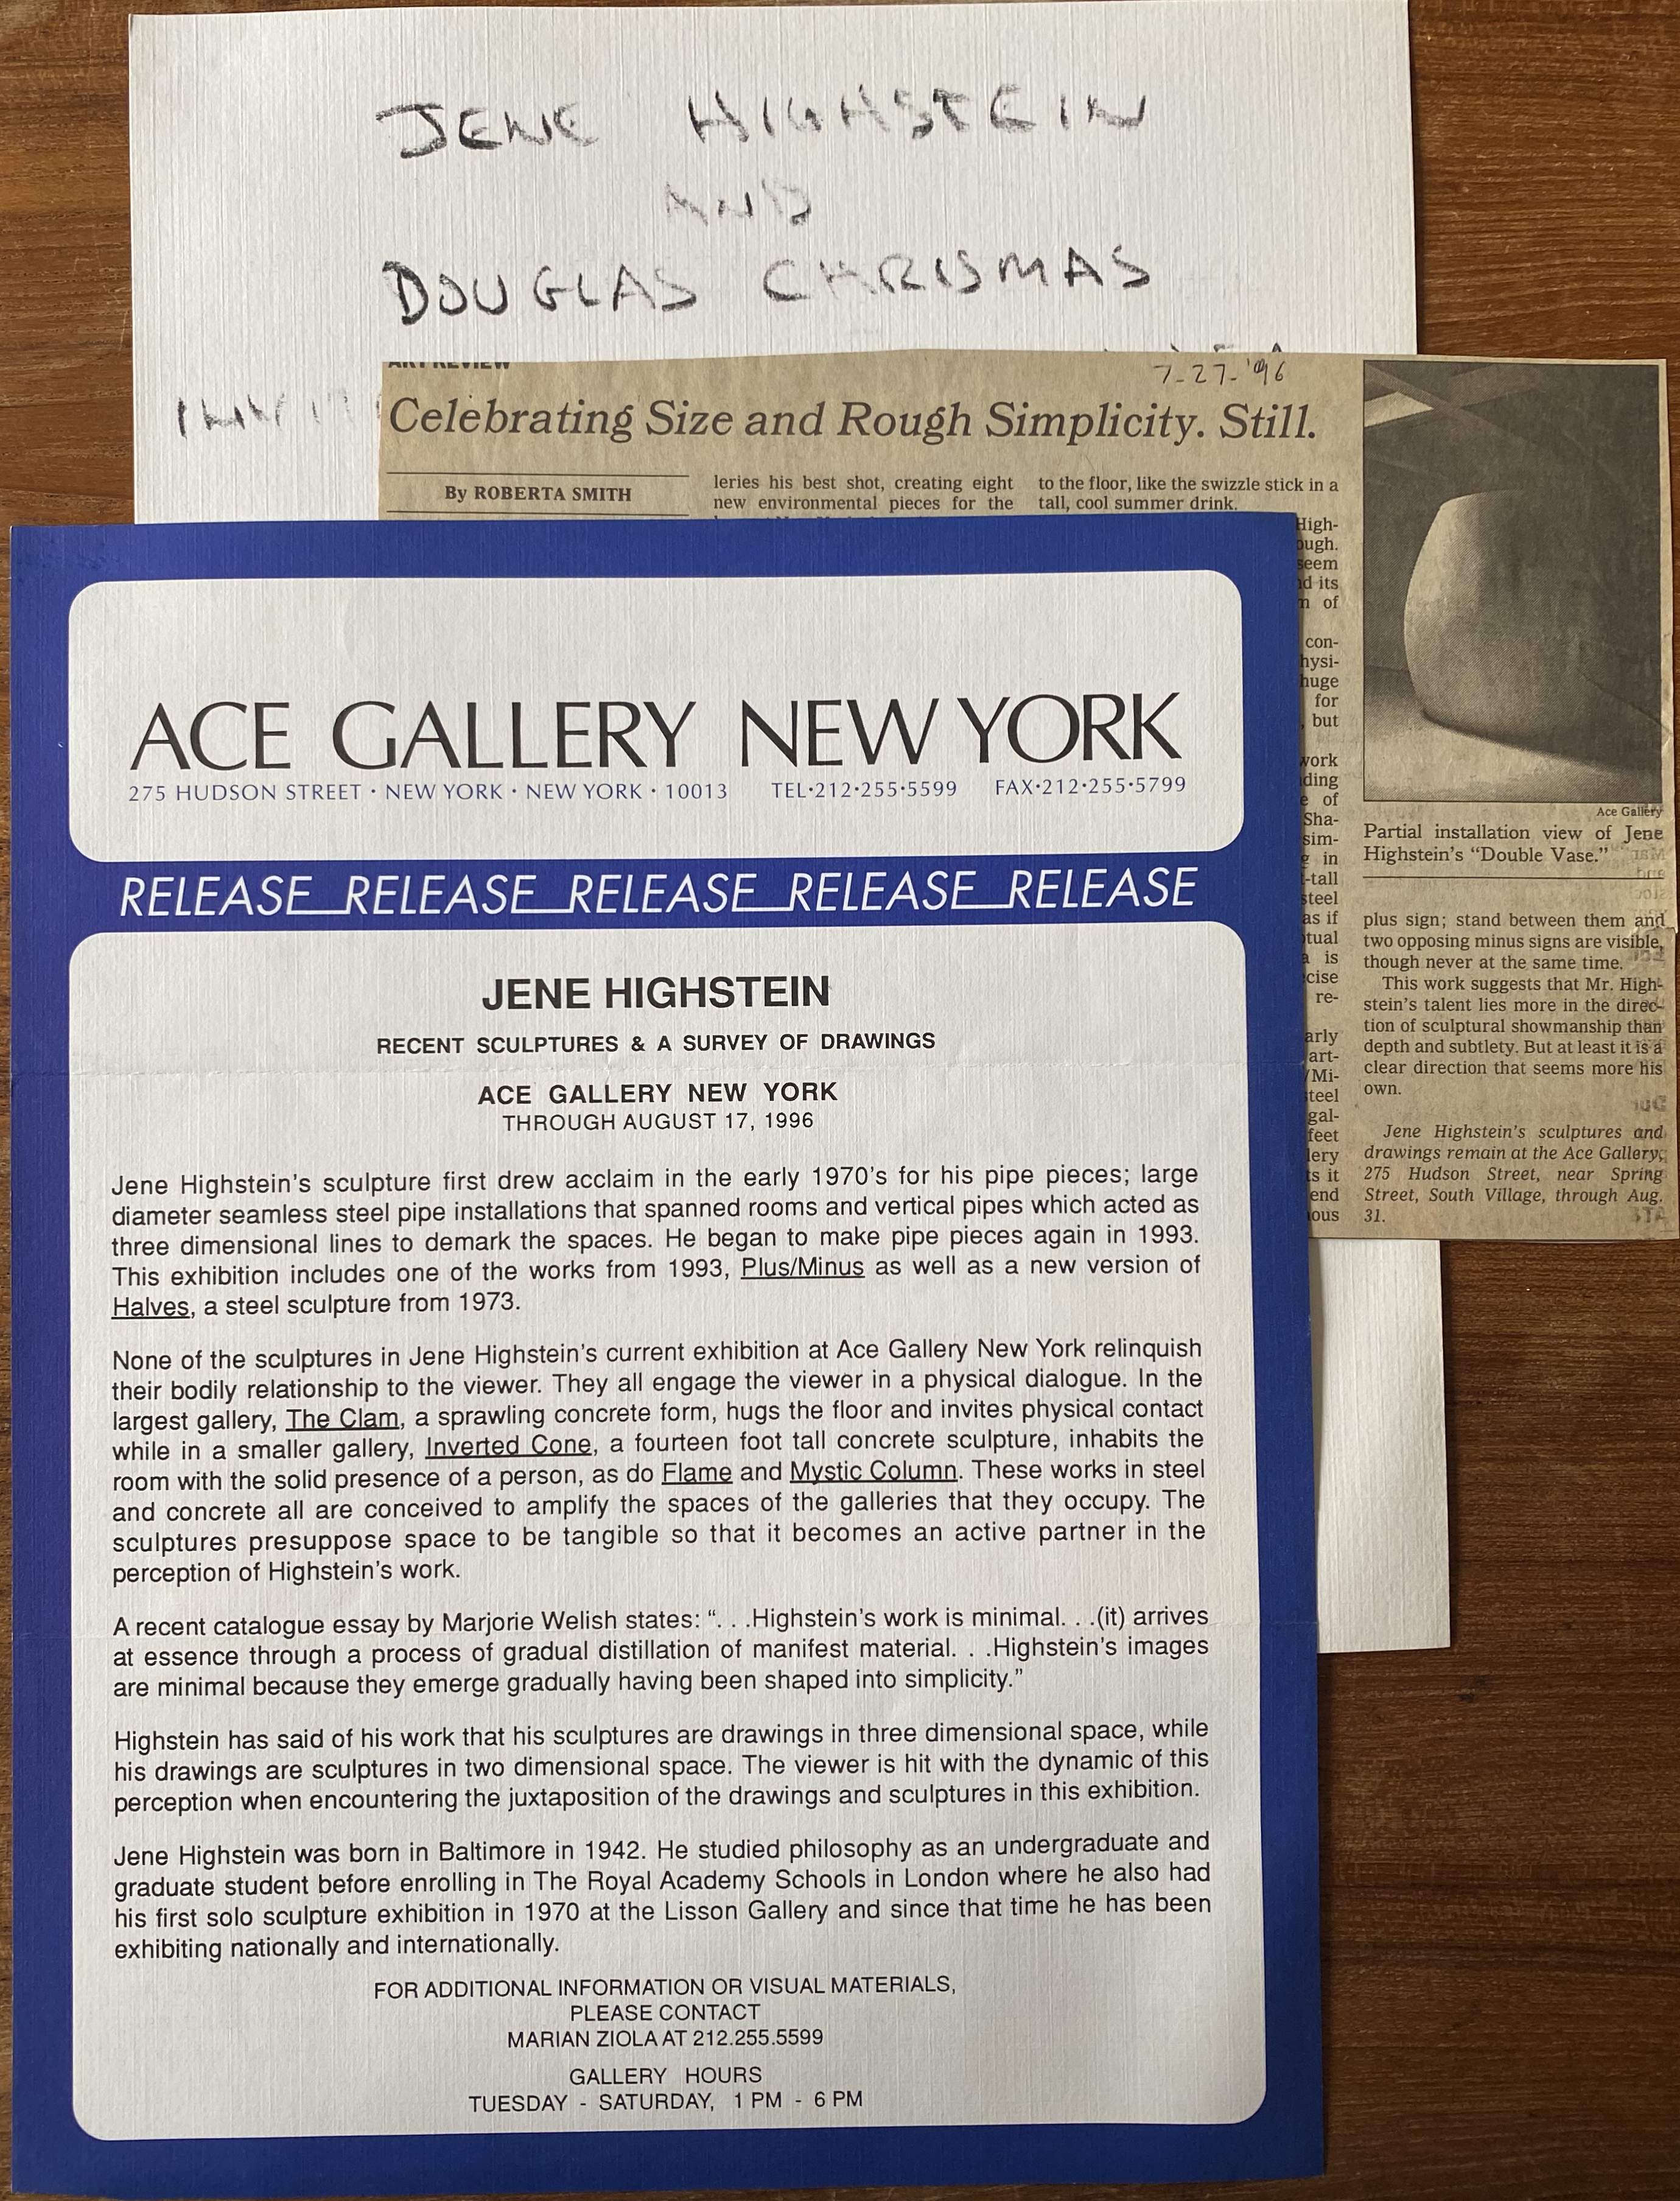 JENE HIGHSTEIN
AND
DOUGLAS CHRISMAS
ART REVIEW
7-27-'96
Celebrating Size and Rough Simplicity. Still.
By ROBERTA SMITH
leries his best shot, creating eight
new environmental pieces for the
to the floor, like the swizzle stick in a
tall, cool summer drink.
High-
ough.
seem
nd its
n of
con-
hysi-
huge
for
, but
work
ding
e of
Sha-
sim-
g in
t-tall
steel
as if
otual
a is
cise
re-
arly
art-
/Mi-
steel
gal-
feet
lery
ts it
end
ious
Ace Gallery
Partial installation view of Jene
Highstein's “Double Vase.”
plus sign; stand between them and
two opposing minus signs are visible,
though never at the same time.
This work suggests that Mr. High-
stein's talent lies more in the direc-
tion of sculptural showmanship than
depth and subtlety. But at least it is a
clear direction that seems more his
own.
Jene Highstein's sculptures and
drawings remain at the Ace Gallery,
275 Hudson Street, near Spring
Street, South Village, through Aug.
31.
ACE GALLERY NEW YORK
275 HUDSON STREET · NEW YORK · NEW YORK · 10013 TEL·212·255·5599 FAX·212·255·5799
RELEASE RELEASE RELEASE RELEASE RELEASE
JENE HIGHSTEIN
RECENT SCULPTURES & A SURVEY OF DRAWINGS
ACE GALLERY NEW YORK
THROUGH AUGUST 17, 1996
Jene Highstein's sculpture first drew acclaim in the early 1970's for his pipe pieces; large
diameter seamless steel pipe installations that spanned rooms and vertical pipes which acted as
three dimensional lines to demark the spaces. He began to make pipe pieces again in 1993.
This exhibition includes one of the works from 1993, Plus/Minus as well as a new version of
Halves, a steel sculpture from 1973.
None of the sculptures in Jene Highstein's current exhibition at Ace Gallery New York relinquish
their bodily relationship to the viewer. They all engage the viewer in a physical dialogue. In the
largest gallery, The Clam, a sprawling concrete form, hugs the floor and invites physical contact
while in a smaller gallery, Inverted Cone, a fourteen foot tall concrete sculpture, inhabits the
room with the solid presence of a person, as do Flame and Mystic Column. These works in steel
and concrete all are conceived to amplify the spaces of the galleries that they occupy. The
sculptures presuppose space to be tangible so that it becomes an active partner in the
perception of Highstein's work.
A recent catalogue essay by Marjorie Welish states: “. . .Highstein's work is minimal. . .(it) arrives
at essence through a process of gradual distillation of manifest material. . .Highstein's images
are minimal because they emerge gradually having been shaped into simplicity.”
Highstein has said of his work that his sculptures are drawings in three dimensional space, while
his drawings are sculptures in two dimensional space. The viewer is hit with the dynamic of this
perception when encountering the juxtaposition of the drawings and sculptures in this exhibition.
Jene Highstein was born in Baltimore in 1942. He studied philosophy as an undergraduate and
graduate student before enrolling in The Royal Academy Schools in London where he also had
his first solo sculpture exhibition in 1970 at the Lisson Gallery and since that time he has been
exhibiting nationally and internationally.
FOR ADDITIONAL INFORMATION OR VISUAL MATERIALS,
PLEASE CONTACT
MARIAN ZIOLA AT 212.255.5599
GALLERY HOURS
TUESDAY - SATURDAY, 1 PM - 6 PM